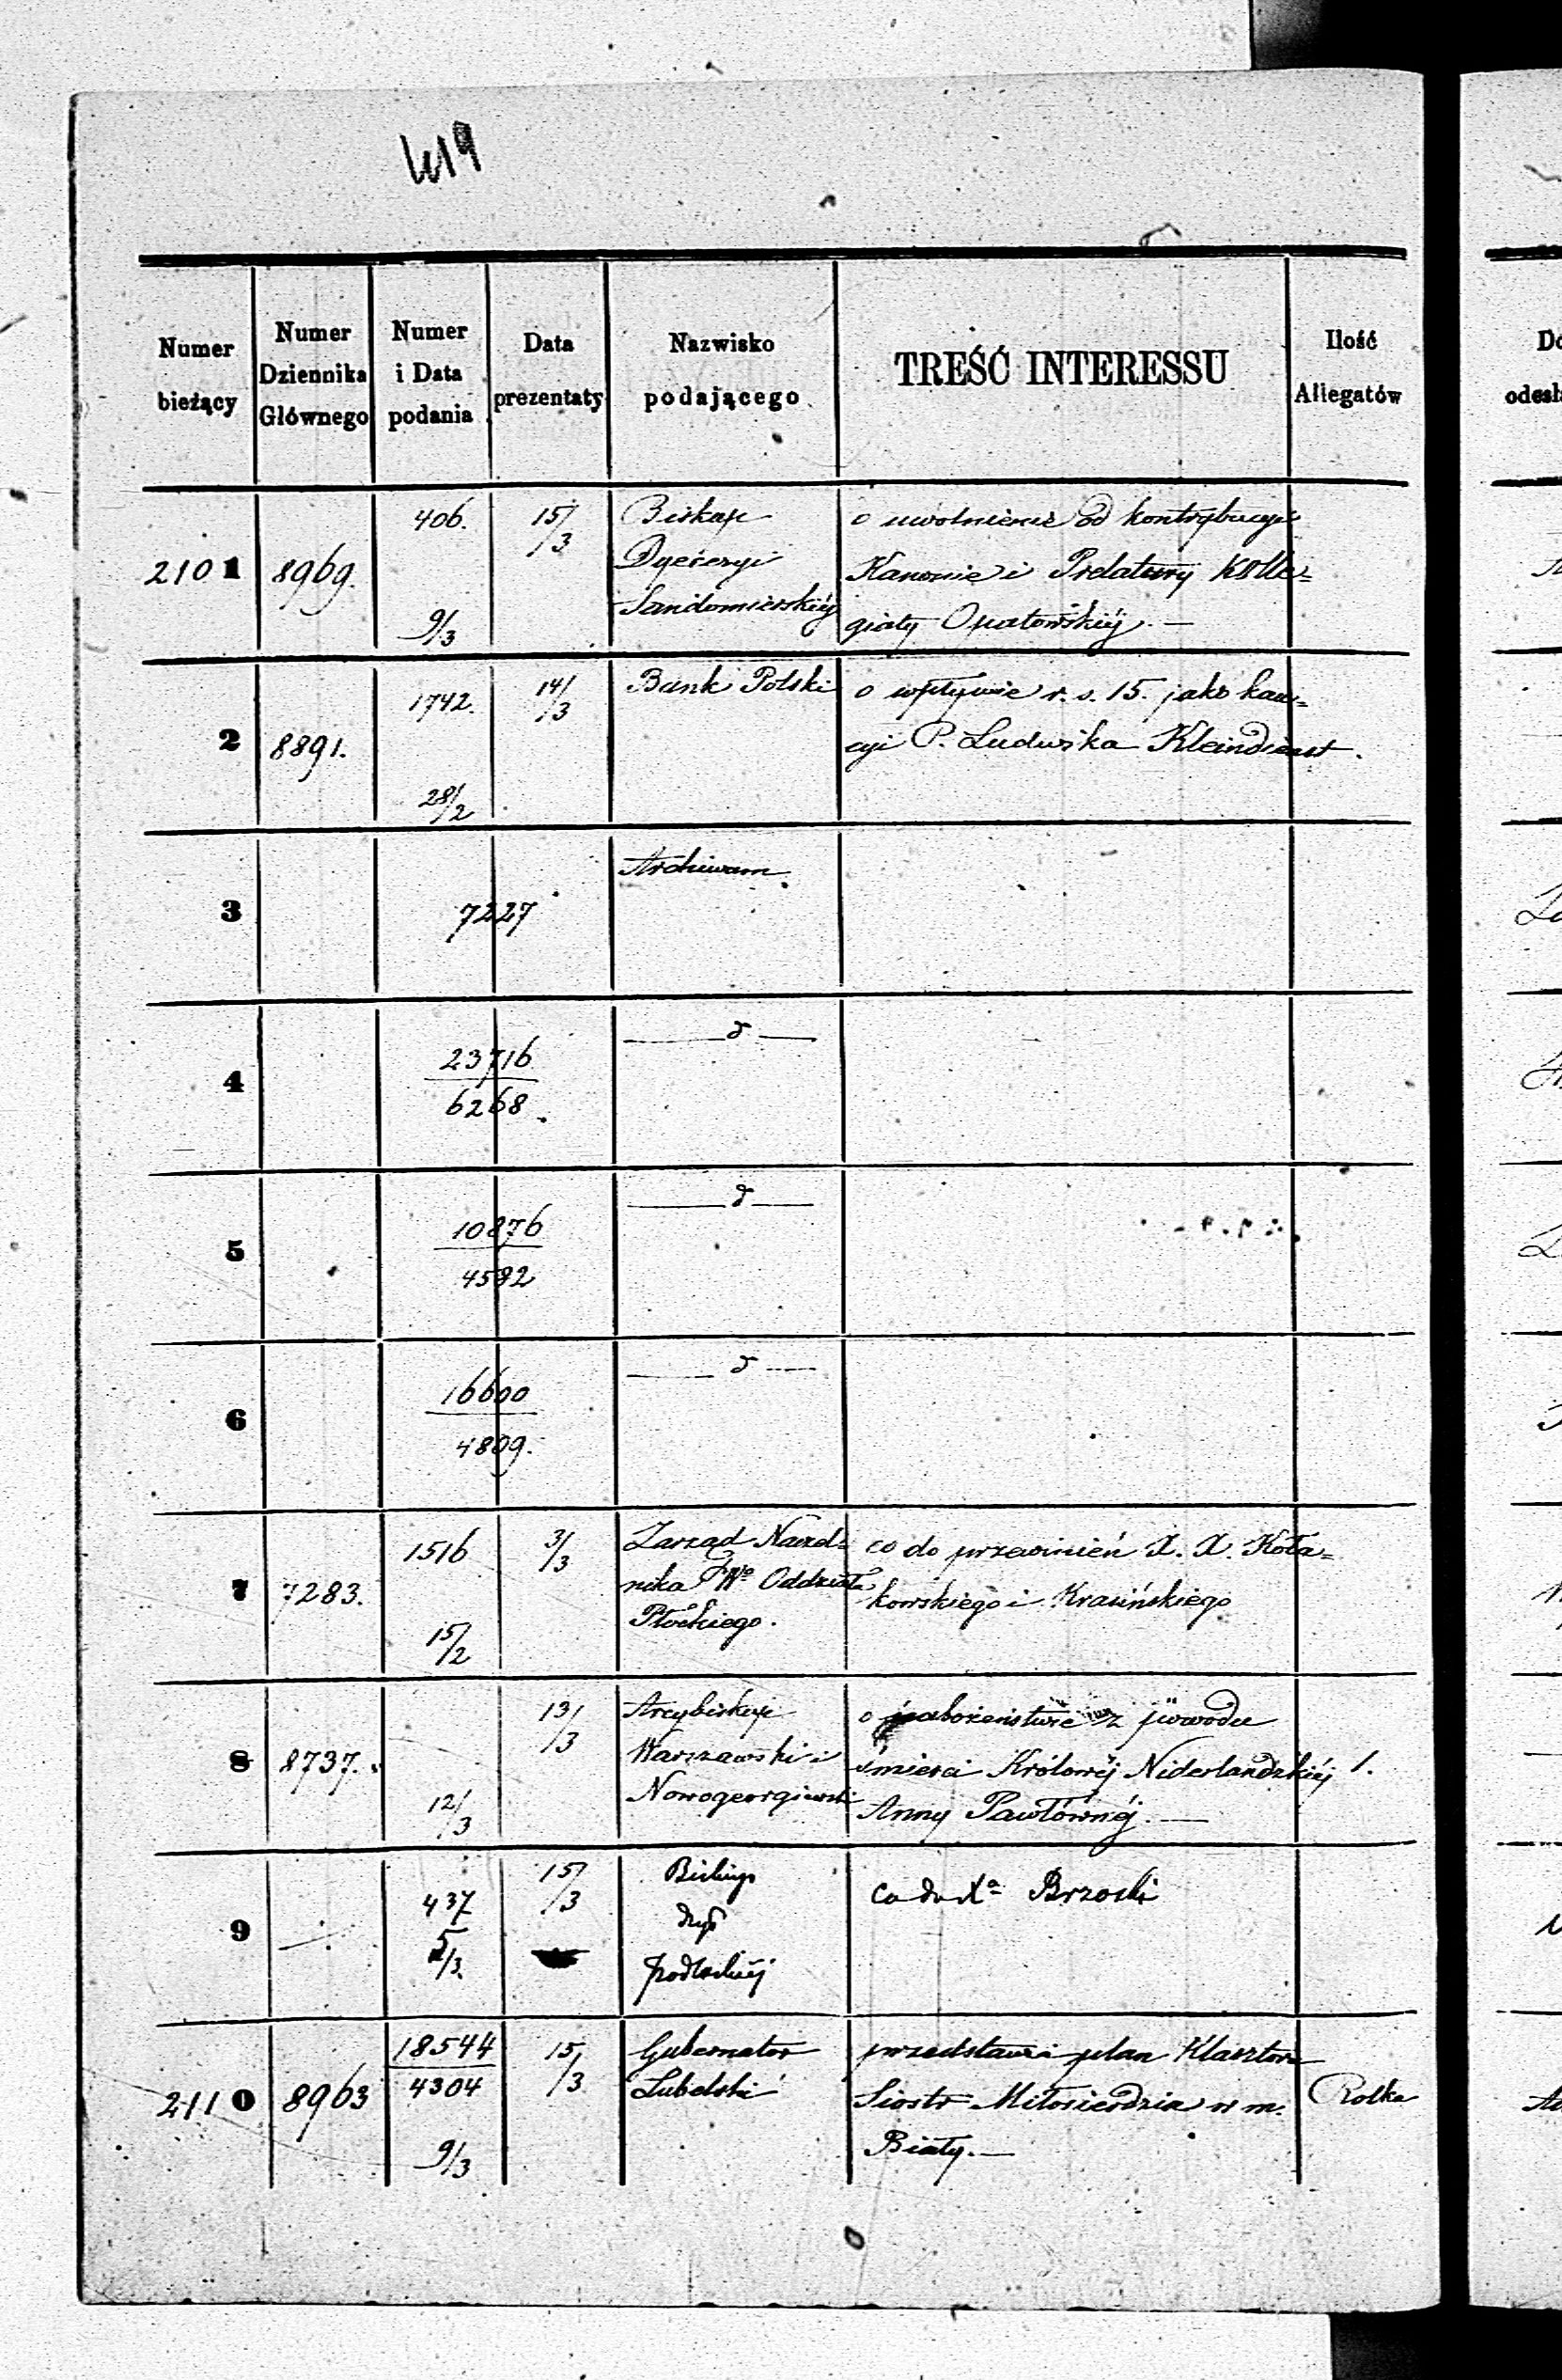 419
Numer bieżący
Numer Dziennika Głównego
Numer i Data podania
Data prezentaty
Nazwisko podającego
TREŚĆ INTERESSU
Ilość Allegatów
2101
8969.
406.
9/3
15/3
Biskup
Dyecezyi
Sandomierskiéj
o uwolnienie od kontrybucyi
Kanonie i Prelatury Kolle=
giaty Opatowskiéj. —
2
8891.
1742.
28/2
14/3
Bank Polski
o wpływie r. s. 15. jako kau=
cyi P. Ludwika Kleindienst.
3
7227
Archiwum
4
23716
6268.
— d —
5
10876
4582
— d —
6
16600
4809.
— d —
7
7283.
1516
15/2
3/3
Zarząd Naczel=
nika Wo Oddziału
Płockiego.
co do przewinień X. X. Koła=
kowskiego i Krasińskiego
8
8737.
12/3
13/3
Arcybiskup
Warszawski i
Nowogeorgiewski
o nabożeństwie z powodu
śmierci Królowéj Niderlandzkiéj
Anny Pawłównéj. —
1.
9
437
5/3.
15/3
Biskup
dyec
podlaskiéj
co do Xa Brzoski
2110
8963
18544
4304
9/3
15/3
Gubernator
Lubelski
przedstawia plan Klasztoru
Siostr Miłosierdzia w m.
Biały. —
Rolka